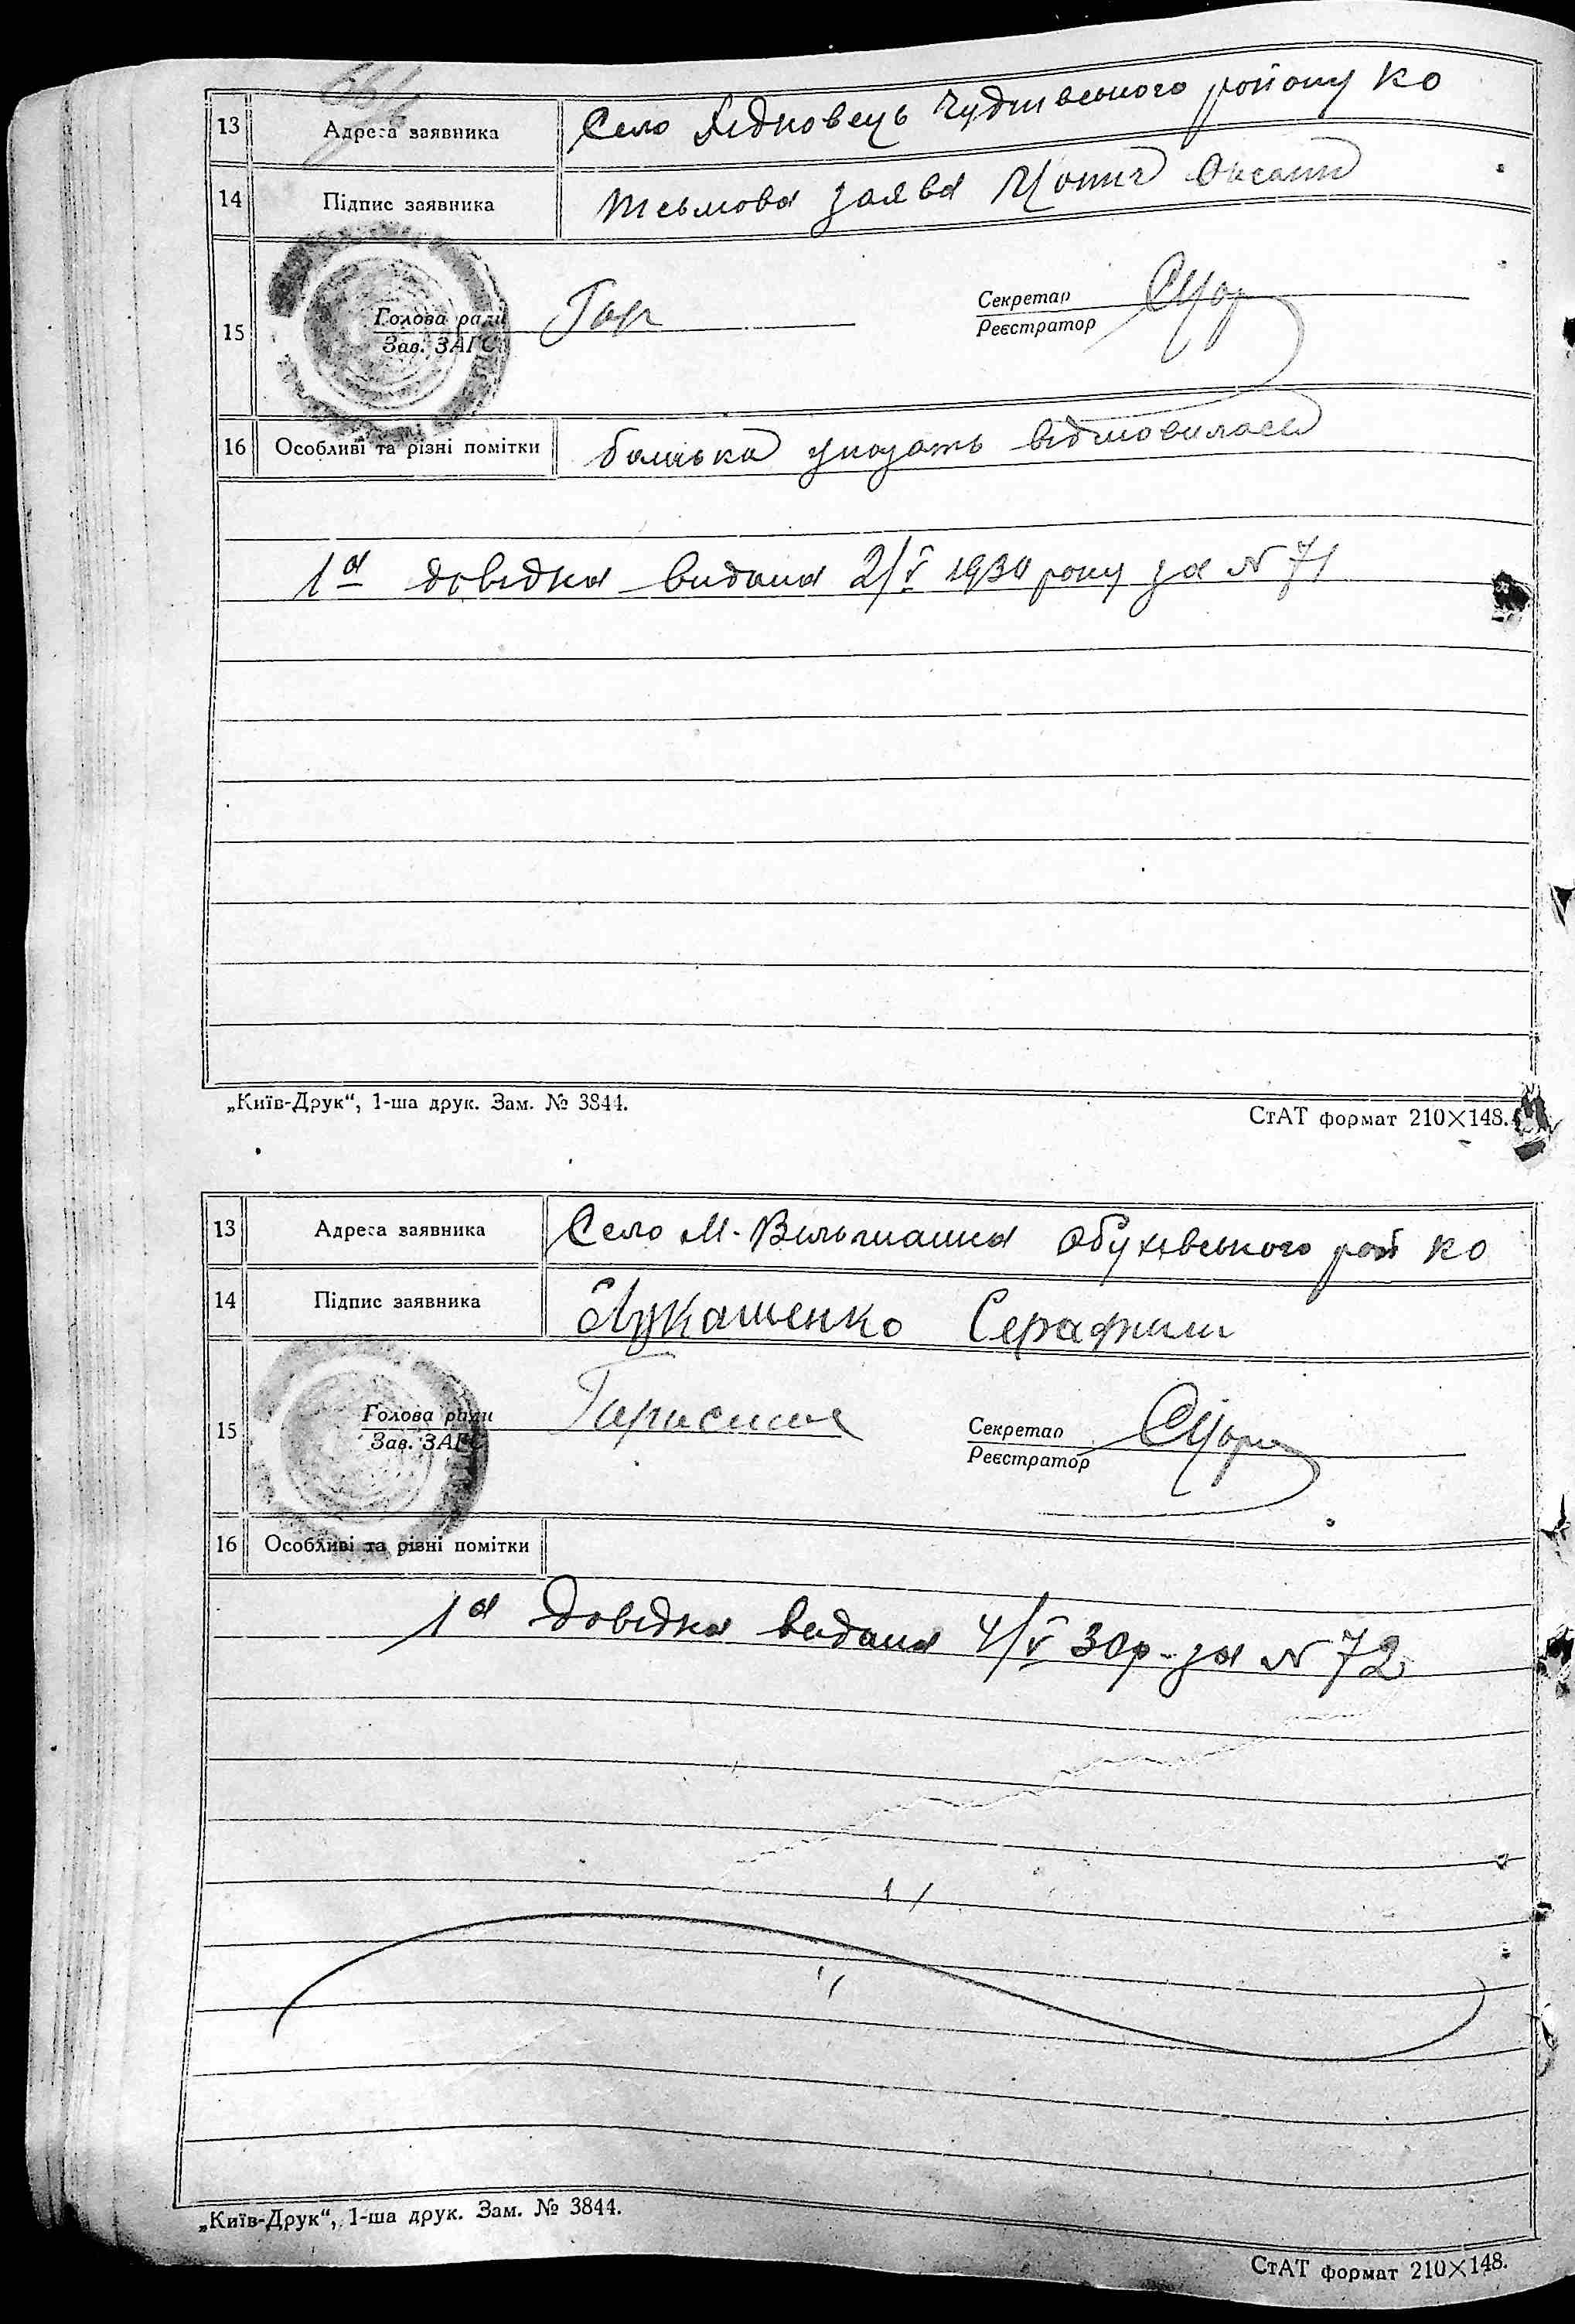 13 Адреса заявника Село Чуднівського району КО
14 Підпис заявника заява Оксани
15 Голова ради Зав. ЗАГС Гар Секретар Реєстратор
16 Особливі та різні помітки батька указать відмовилася
1а довідка видана 2/V 1930 року за N 71
„Київ-Друк“, 1-ша друк. Зам. № 3844.
СтАТ формат 210×148.
13 Адреса заявника Село М. Вільшанка Обухівського рай КО
14 Підпис заявника Лукашенко Серафим
15 Голова ради Зав. ЗАГС Секретар Реєстратор
16 Особливі та різні помітки
1а Довідка видана 4/V 30р. за N 72
„Київ-Друк“, 1-ша друк. Зам. № 3844.
СтАТ формат 210×148.